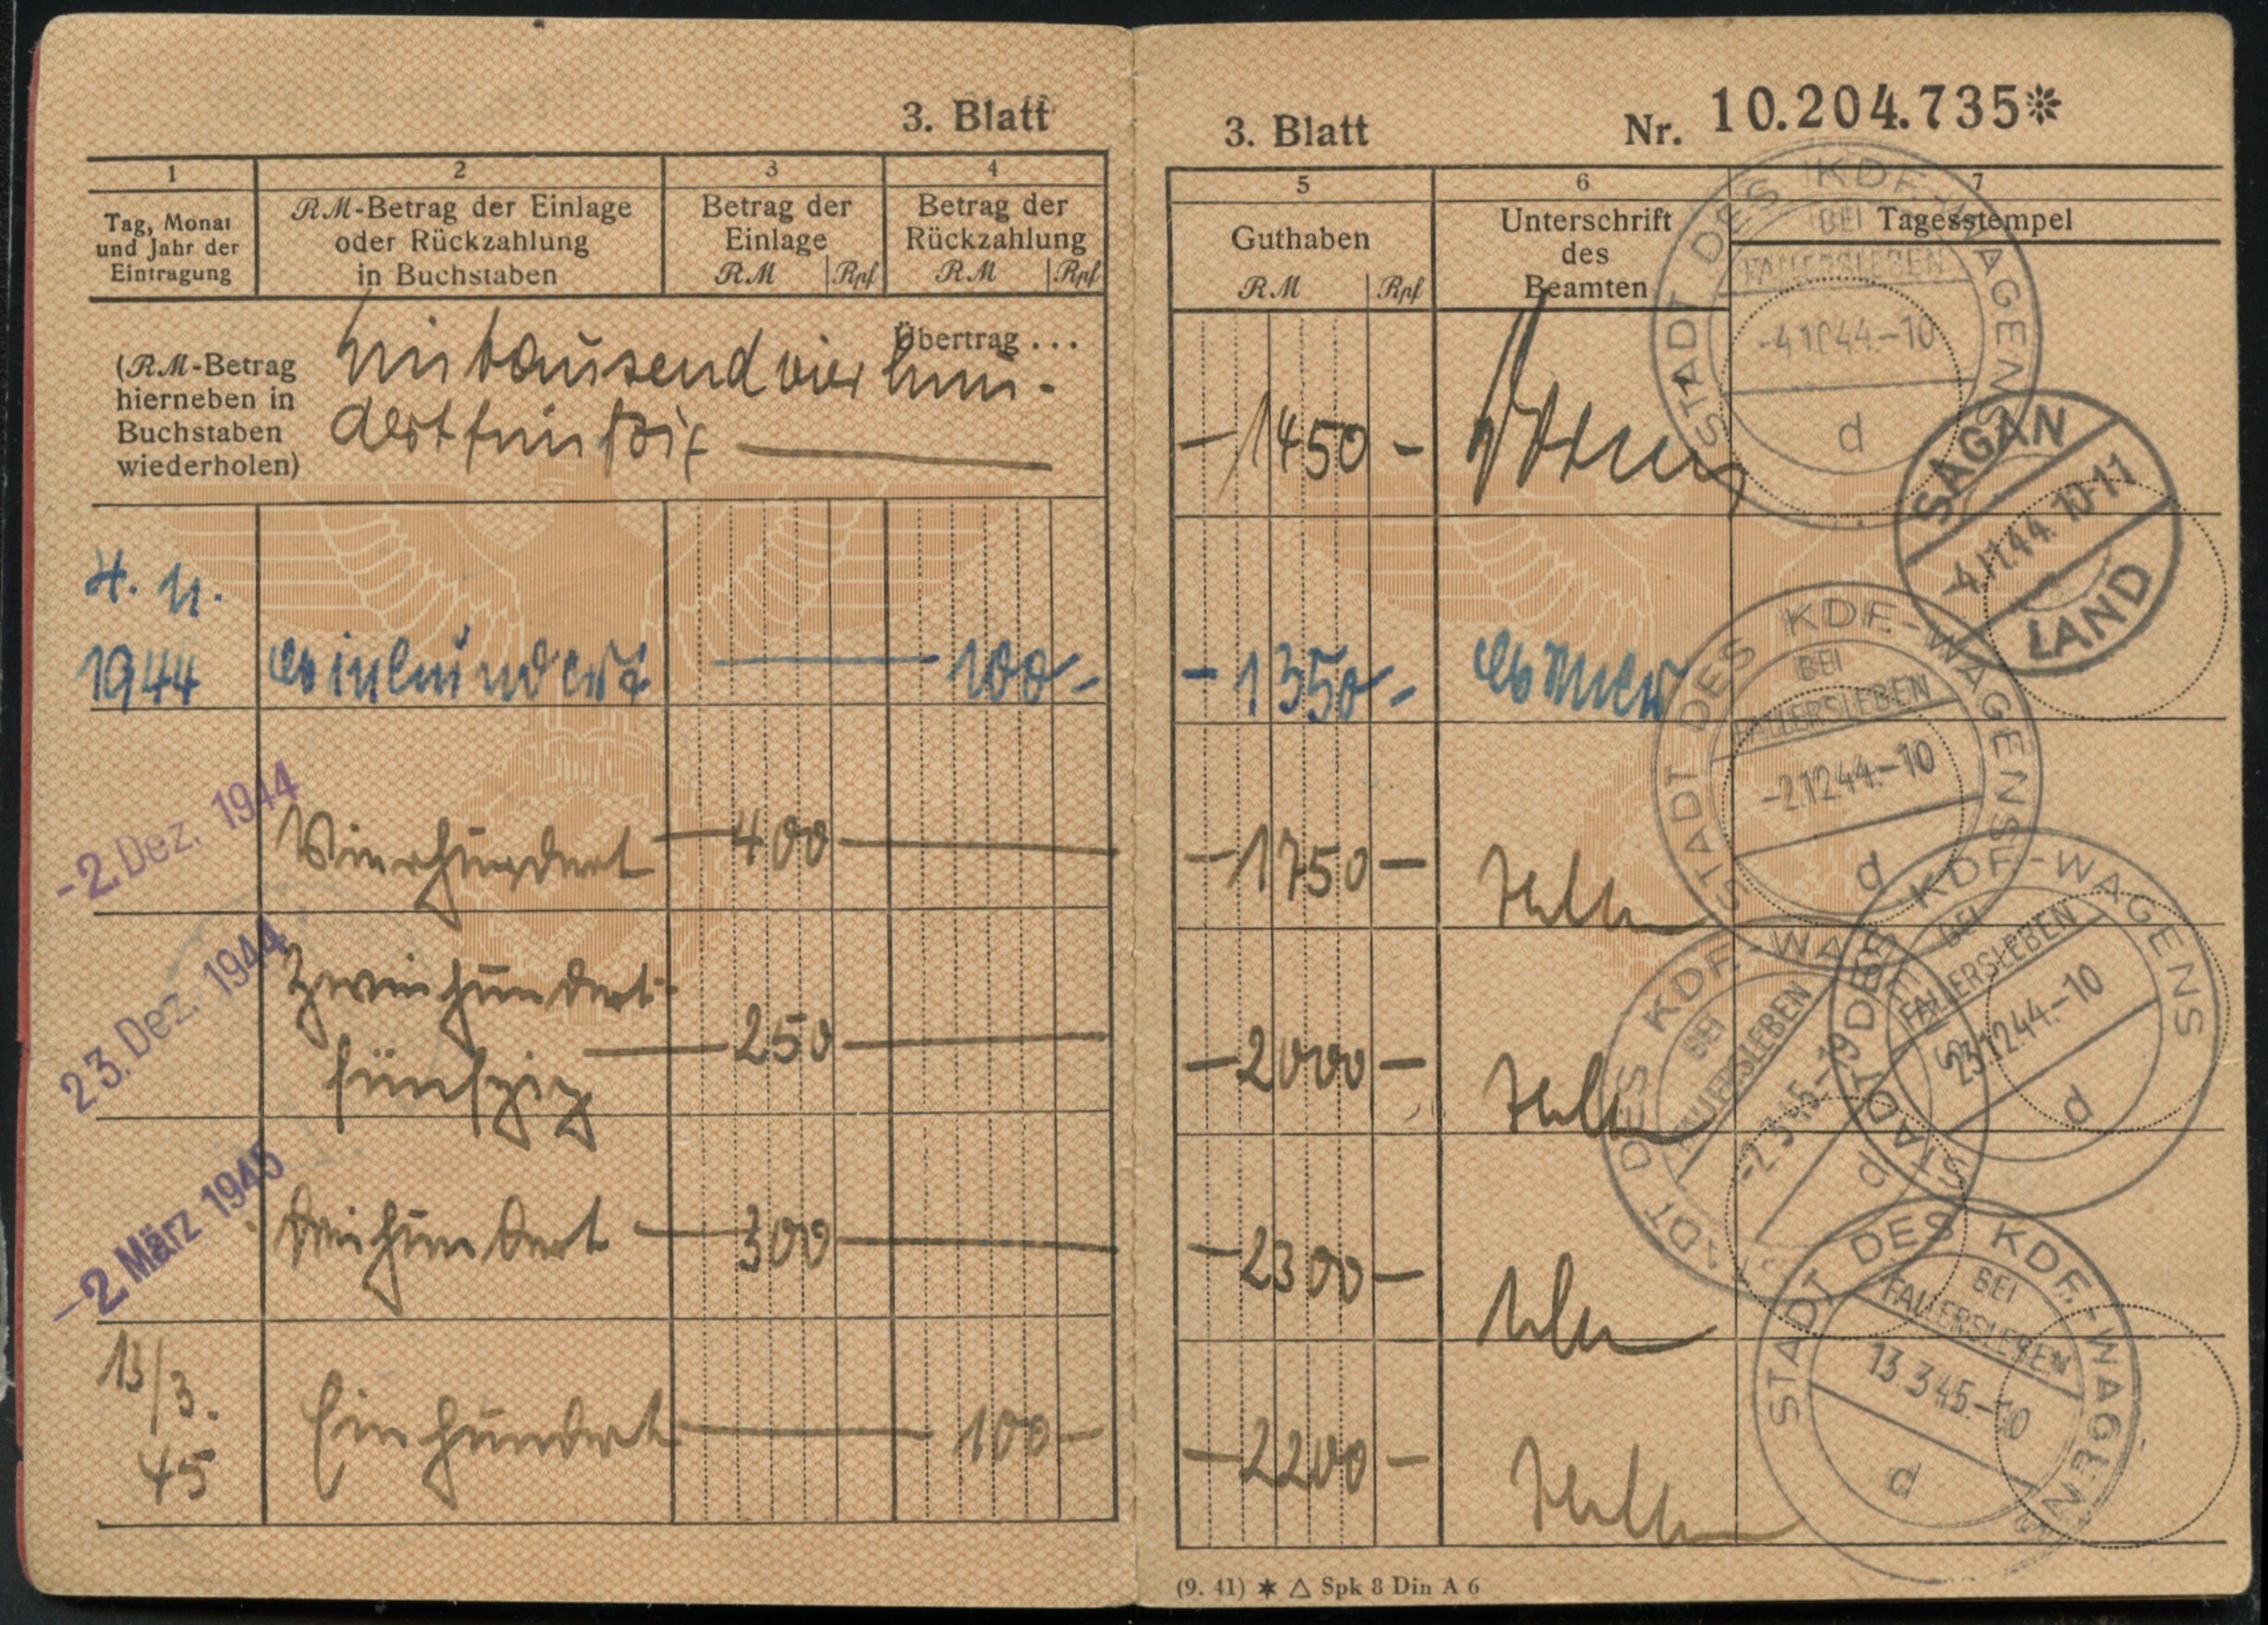 3. Blatt
1
2
3
4
Tag, Monat
und Jahr der
Eintragung
RM-Betrag der Einlage
oder Rückzahlung
in Buchstaben
Betrag der
Einlage
RM Rpf
Betrag der
Rückzahlung
RM Rpf
Übertrag . . .
(RM-Betrag
hierneben in
Buchstaben
wiederholen)
Eintausend vier hun-
dertfünfzig
4. 11.
1944 einhundert 100-
-2. Dez. 1944
Vierhundert 400
23. Dez. 1944
Zweihundert-
fünfzig 250
-2. März 1945
Dreihundert 300
13/3.
45
Einhundert 100-
3. Blatt
Nr. 10.204.735*
5
6
7
Guthaben
RM Rpf
Unterschrift
des
Beamten
Tagesstempel
-1450-
-1350-
-1750-
-2000-
-2300-
-2200-
STADT DES KDF.-WAGENS
BEI
FALLERSLEBEN
-4.10.44.-10
d
SAGAN
4.11.44. 10-11
LAND
STADT DES KDF.-WAGENS
BEI
FALLERSLEBEN
-2.12.44.-10
d
STADT DES KDF.-WAGENS
BEI
FALLERSLEBEN
23.12.44.-10
d
STADT DES KDF.-WAGENS
BEI
FALLERSLEBEN
-2.3.45.-19
d
STADT DES KDF.-WAGENS
BEI
FALLERSLEBEN
13.3.45.-10
d
(9. 41) ✶ △ Spk 8 Din A 6